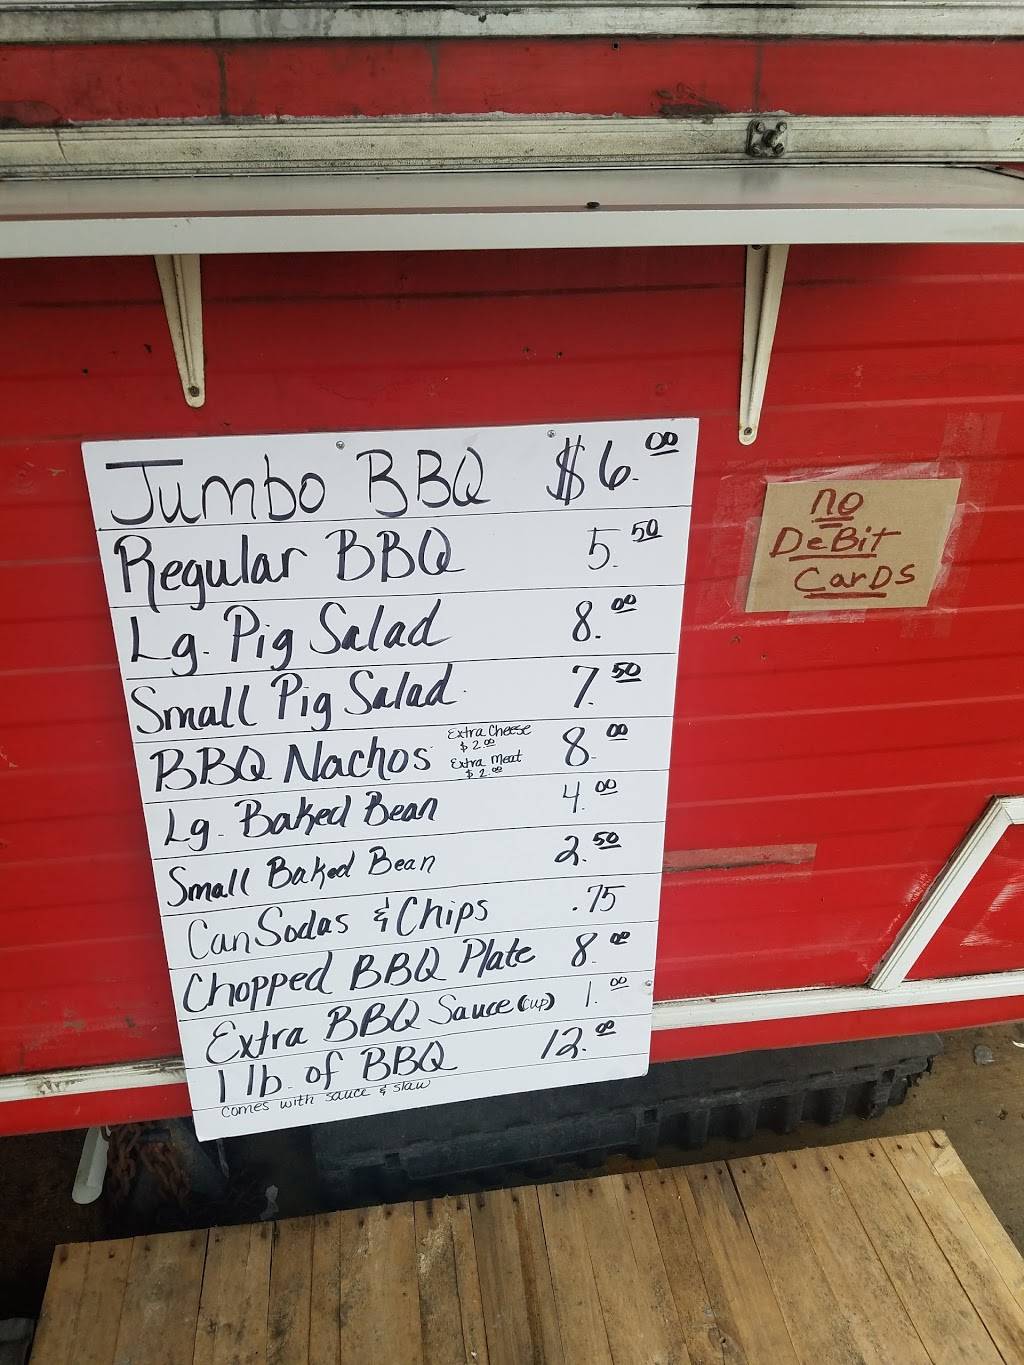 Jumbo BBQ $6.00
Regular BBQ 5.50
Lg. Pig Salad 8.00
Small Pig Salad. 7.50
BBQ Nachos Extra Cheese $2.00 Extra Meat $2.00 8.00
Lg. Baked Bean 4.00
Small Baked Bean 2.50
Can Sodas & Chips .75
Chopped BBQ Plate 8.00
Extra BBQ Sauce (cup) 1.00
1 lb. of BBQ 12.00
comes with sauce & slaw
no
DeBit
CarDs